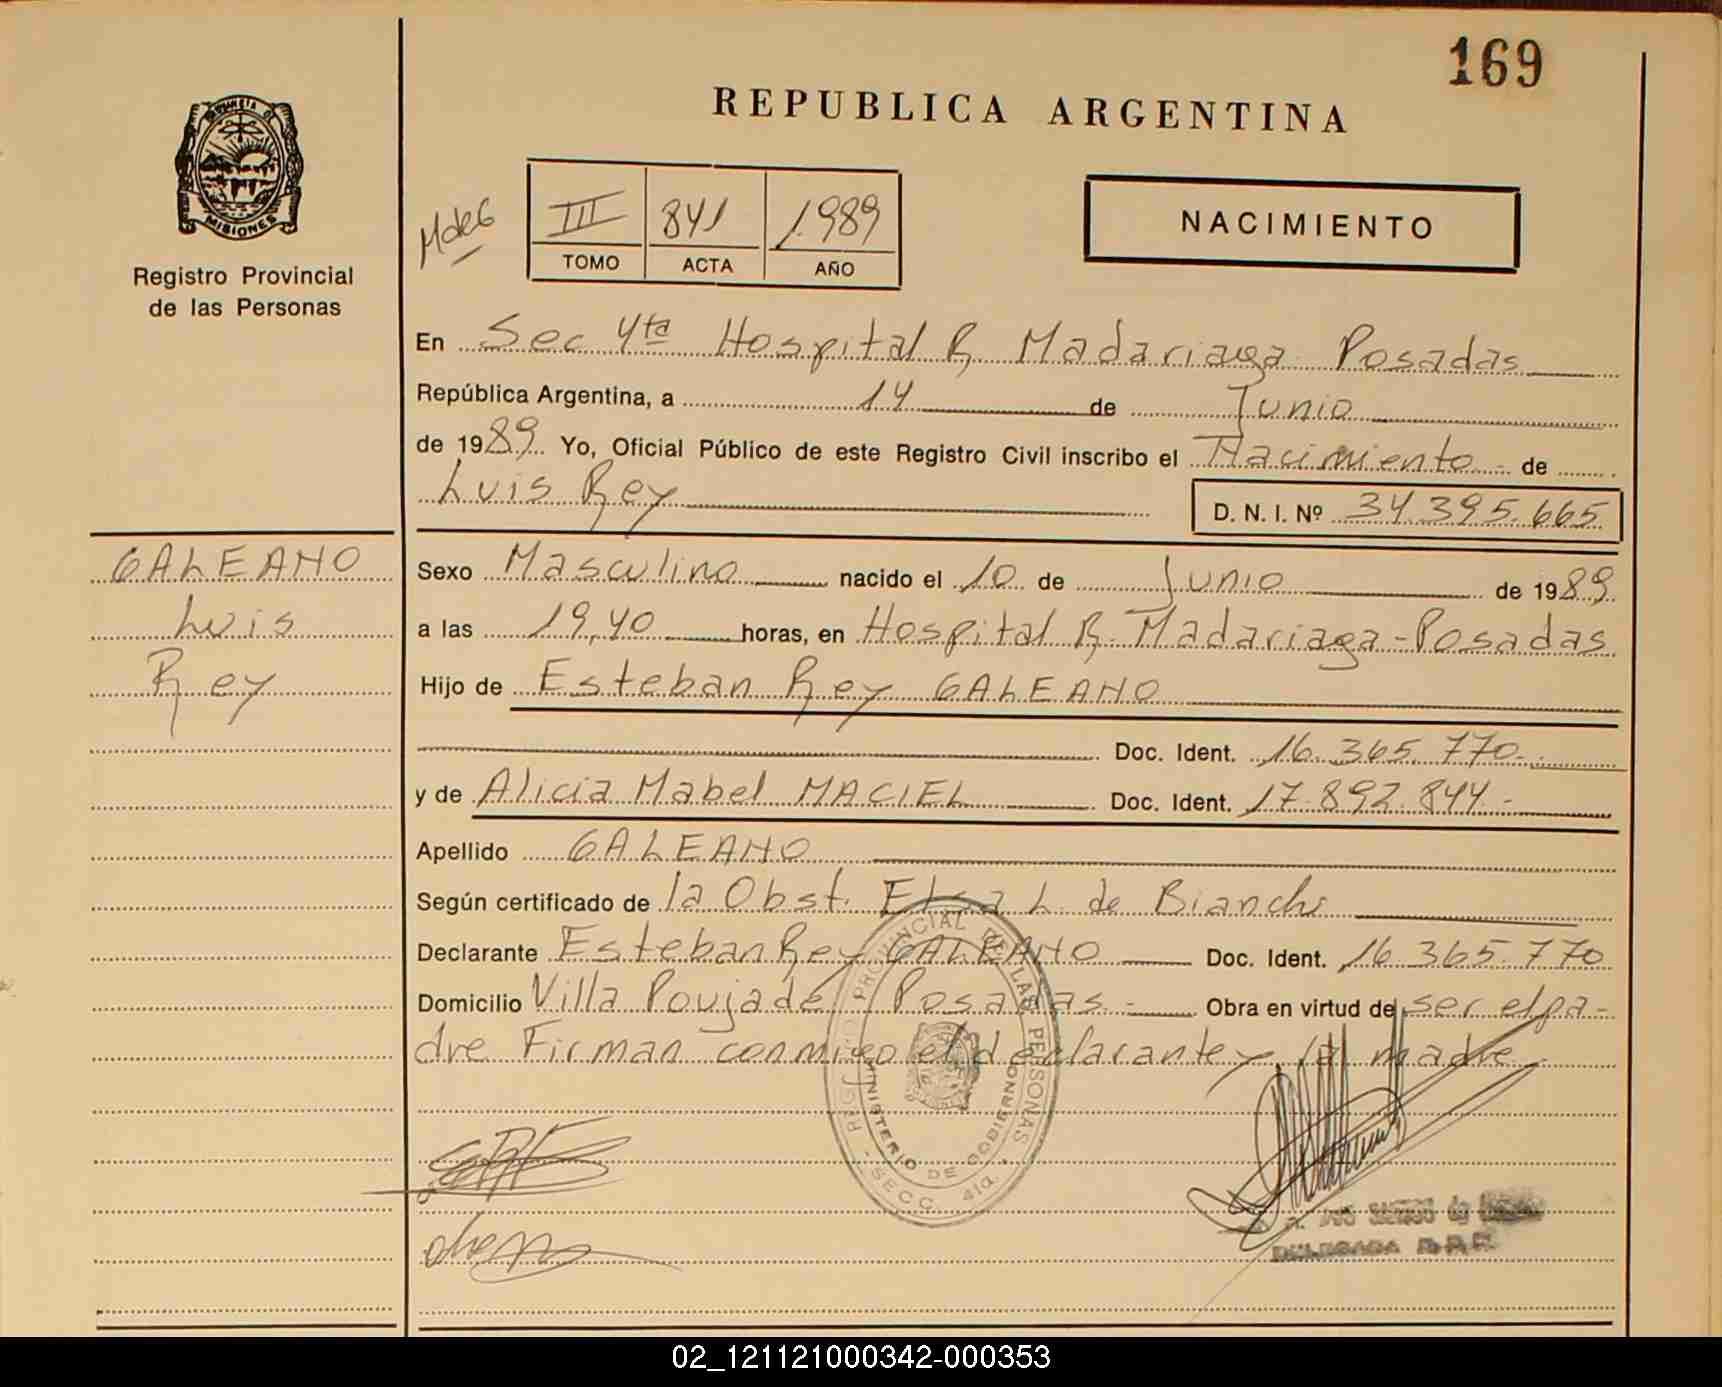 169
REPUBLICA ARGENTINA
MISIONES
Registro Provincial
de las Personas
III 841 1989
TOMO ACTA AÑO
NACIMIENTO
En Sec 4ta Hospital R. Madariaga Posadas
República Argentina, a 14 de Junio
de 1989 Yo, Oficial Público de este Registro Civil inscribo el Nacimiento de
Luis Rey
D. N. I. Nº 34.395.665
GALEANO
Luis
Rey
Sexo Masculino nacido el 10 de Junio de 1989
a las 19,40 horas, en Hospital R. Madariaga - Posadas
Hijo de Esteban Rey GALEANO
Doc. Ident. 16.365.770.
y de Alicia Mabel MACIEL Doc. Ident. 17.892.844.-
Apellido GALEANO
Según certificado de la Obst. Elsa L. de Bianchi
Declarante Esteban Rey GALEANO Doc. Ident. 16.365.770
Domicilio Villa Poujade / Posadas - Obra en virtud de ser el pa-
dre Firman conmigo el declarante y la madre
REGISTRO PROVINCIAL DE LAS PERSONAS
MINISTERIO DE GOBIERNO
SECC. 4ta.
DELEGADA R.P.P.
02_121121000342-000353